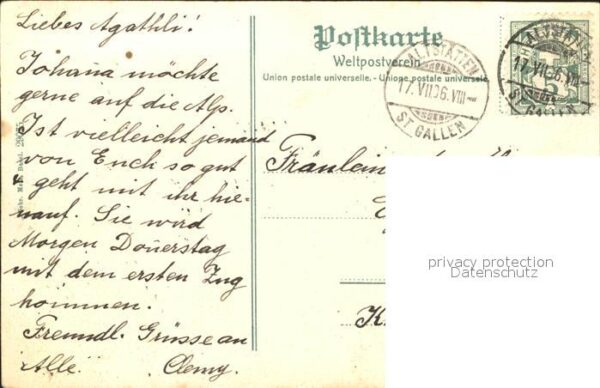 Liebes Agathli!
Johana möchte
gerne auf die Alp.
Ist vielleicht jemand
von Euch so gut
geht mit ihr hin-
auf. Sie wird
Morgen Donerstag
mit dem ersten Zug
kommen.
Freundl. Grüsse an
Alle.
Postkarte
Weltpostverein
Union postale universelle. - Unione postale universale
ALTSTÄTTEN
17.VII.06.VIII-
ST GALLEN
ALTSTÄTTEN
17.VII.06.VIII-
ST GALLEN
Fräulein
K
privacy protection
Datenschutz